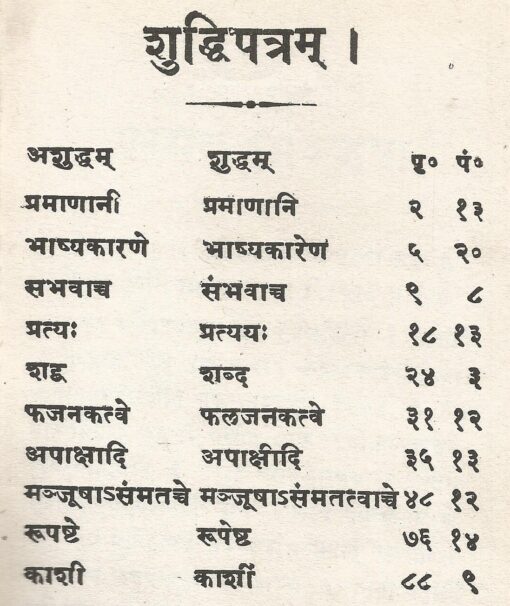 शुद्धिपत्रम् ।
अशुद्धम् शुद्धम् पृ० पं०
प्रमाणानी प्रमाणानि २ १३
भाष्यकारणे भाष्यकारेण ५ २०
सभवाच्च संभवाच्च ९ ८
प्रत्यः प्रत्ययः १८ १३
शद्व शब्द २४ ३
फजनकत्वे फलजनकत्वे ३१ १२
अपाक्षादि अपाक्षीदि ३५ १३
मञ्जूषाऽसंमतच्चे मञ्जूषाऽसंमतत्वाच्चे ४८ १२
रूपष्टे रूपेष्ट ७६ १४
काशी काशीं ८८ ९